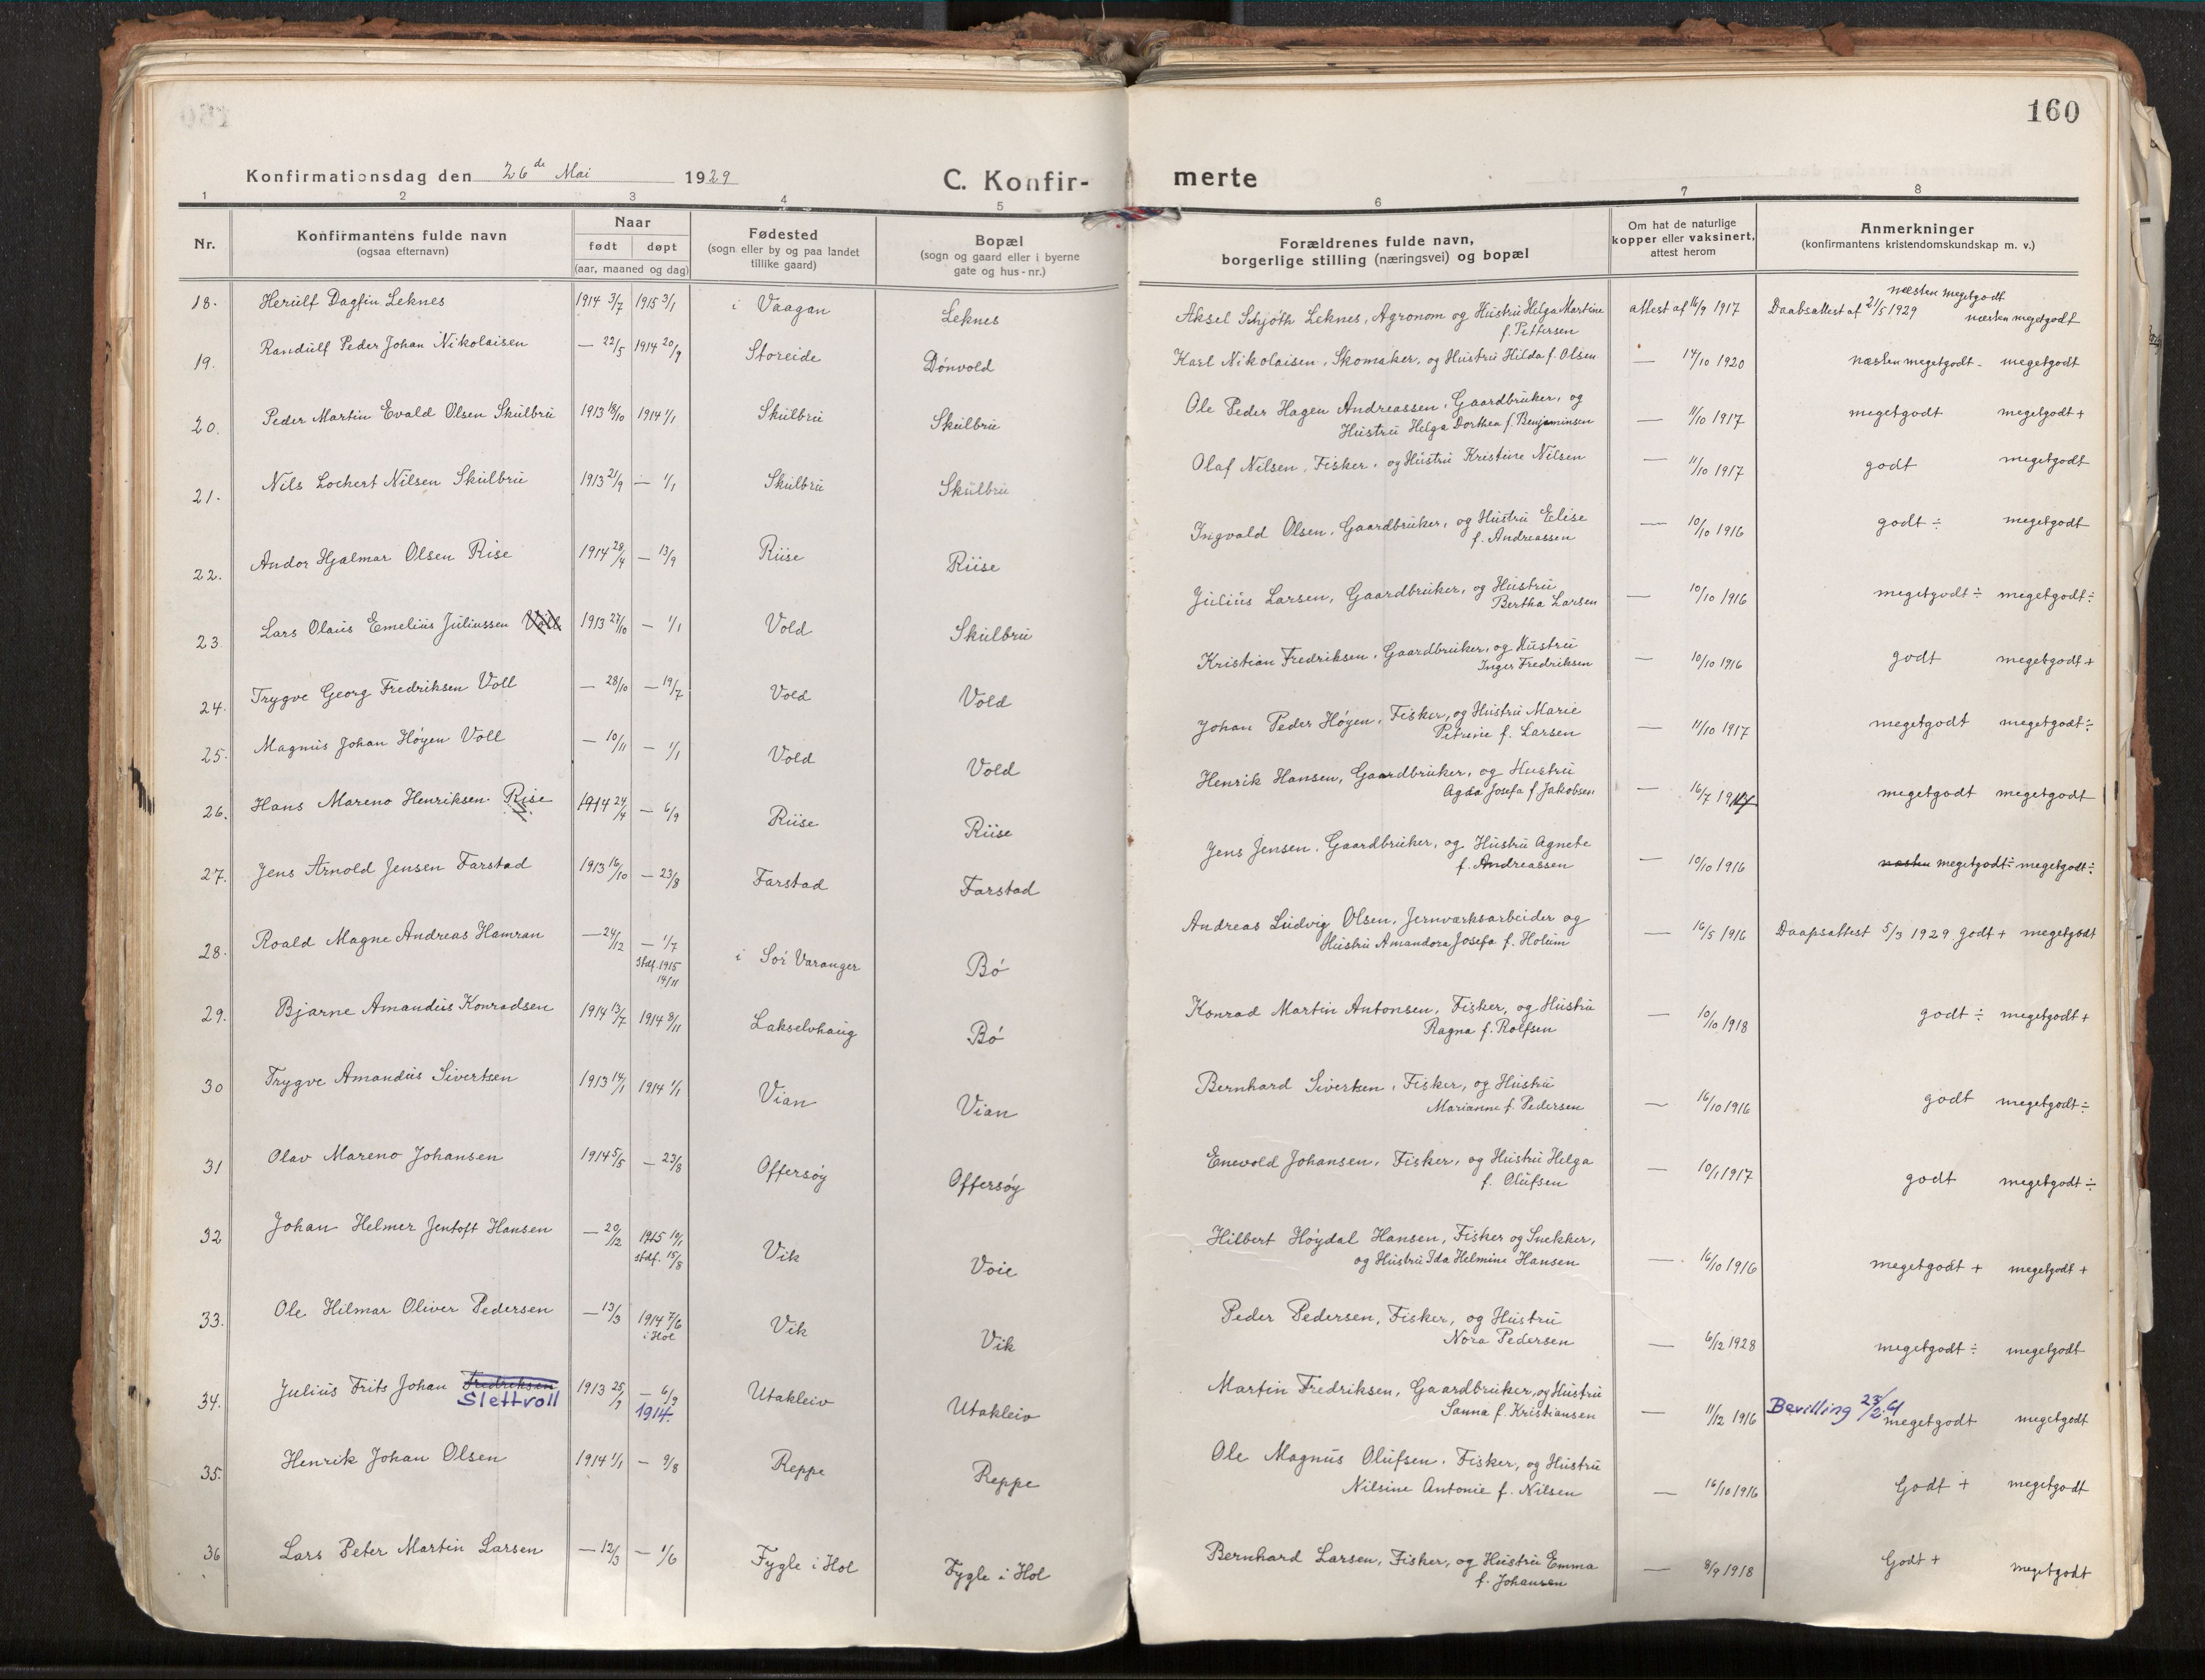 160
Konfirmationsdag den 26de Mai 1929
C. Konfir-
merte
1 2 3 4 5 6 7 8
Nr.
Konfirmantens fulde navn
(ogsaa efternavn)
Naar
født døpt
(aar, maaned og dag)
Fødested
(sogn eller by og paa landet
tillike gaard)
Bopæl
(sogn og gaard eller i byerne
gate og hus-nr.)
Forældrenes fulde navn,
borgerlige stilling (næringsvei) og bopæl
Om hat de naturlige
kopper eller vaksinert,
attest herom
Anmerkninger
(konfirmantens kristendomskundskap m. v.)
18. Herulf Dagfin Leknes 1914 3/7 1915 3/1 i Vaagan Leknes Aksel Schjøth Leknes, Agronom og Hustru Helga Martine
f. Pettersen attest af 16/9 1917 Daabsattest af 21/5 1929 næsten megetgodt
næsten megetgodt
19. Randulf Peder Johan Nikolaisen — 22/5 1914 20/9 Storeide Dønvold Karl Nikolaisen, Skomaker, og Hustru Hilda f. Olsen — 14/10 1920 næsten megetgodt - megetgodt
20. Peder Martin Evald Olsen Skulbru 1913 18/10 1914 1/1 Skulbru Skulbru Ole Peder Hagen Andreassen, Gaardbruker, og
Hustru Helga Dorthea f. Benjaminsen — 11/10 1917 megetgodt megetgodt +
21. Nils Lochert Nilsen Skulbru 1913 21/9 — 1/1 Skulbru Skulbru Olaf Nilsen, Fisker, og Hustru Kristine Nilsen — 11/10 1917 godt megetgodt
22. Andor Hjalmar Olsen Rise 1914 28/4 — 13/9 Riise Riise Ingvald Olsen, Gaardbruker, og Hustru Elise
f. Andreassen — 10/10 1916 godt ÷ megetgodt
23 Lars Olaus Emelius Juliussen Voll 1913 27/10 — 1/1 Vold Skulbru Julius Larsen, Gaardbruker, og Hustru
Bertha Larsen — 10/10 1916 megetgodt ÷ megetgodt ÷
24. Trygve Georg Fredriksen Voll — 28/10 — 19/7 Vold Vold Kristian Fredriksen, Gaardbruker, og Hustru
Inger Fredriksen — 10/10 1916 godt megetgodt +
25. Magnus Johan Høyen Voll — 10/11 — 1/1 Vold Vold Johan Peder Høyen, Fisker, og Hustru Marie
Petrine f. Larsen — 11/10 1917 megetgodt megetgodt ÷
26. Hans Mareno Henriksen Rise 1914 24/4 — 6/9 Riise Riise Henrik Hansen, Gaardbruker, og Hustru
Agda Josefa f. Jakobsen — 16/7 1917 megetgodt megetgodt
27. Jens Arnold Jensen Farstad 1913 16/10 — 23/8 Farstad Farstad Jens Jensen, Gaardbruker, og Hustru Agnete
f. Andreassen — 10/10 1916 næsten megetgodt ÷ megetgodt ÷
28. Roald Magne Andreas Hamran — 24/12 — 1/7
stdf. 1915
14/11 i Sør Varanger Bø Andreas Ludvig Olsen, Jernværksarbeider og
Hustru Amandora Josefa f. Holum — 16/5 1916 Daapsattest 5/3 1929 godt + megetgodt
29. Bjarne Amandus Konradsen 1914 13/7 1914 8/11 Lakselvhaug Bø Konrad Martin Antonsen, Fisker, og Hustru
Ragna f. Rolfsen — 10/10 1918 godt ÷ megetgodt +
30 Trygve Amandus Sivertsen 1913 14/1 1914 1/1 Vian Vian Bernhard Sivertsen, Fisker, og Hustru
Marianne f. Pedersen — 16/10 1916 godt megetgodt ÷
31 Olav Mareno Johansen 1914 5/5 — 23/8 Offersøy Offersøy Enevold Johansen, Fisker, og Hustru Helga
f. Olufsen — 10/1 1917 godt megetgodt ÷
32 Johan Helmer Jentoft Hansen — 20/12 1915 10/1
stdf. 15/8 Vik Voie Hilbert Høydal Hansen, Fisker og Snekker,
og Hustru Ida Helmine Hansen — 16/10 1916 megetgodt + megetgodt +
33. Ole Hilmar Oliver Pedersen — 13/3 1914 7/6
i Hol Vik Vik Peder Pedersen, Fisker, og Hustru
Nora Pedersen — 6/12 1928 megetgodt ÷ megetgodt
34. Julius Frits Johan Fredriksen
Slettvoll 1913 25/9 — 6/9
1914. Utakleiv Utakleiv Martin Fredriksen, Gaardbruker, og Hustru
Sanna f. Kristiansen — 11/12 1916 Bevilling megetgodt megetgodt
35. Henrik Johan Olsen 1914 1/1 — 9/8 Reppe Reppe Ole Magnus Olufsen, Fisker, og Hustru
Nilsine Antonie f. Nilsen — 16/10 1916 Godt + megetgodt
36 Lars Peter Martin Larsen — 12/3 — 1/6 Fygle i Hol Fygle i Hol Bernhard Larsen, Fisker, og Hustru Emma
f. Johansen — 8/9 1918 Godt + megetgodt